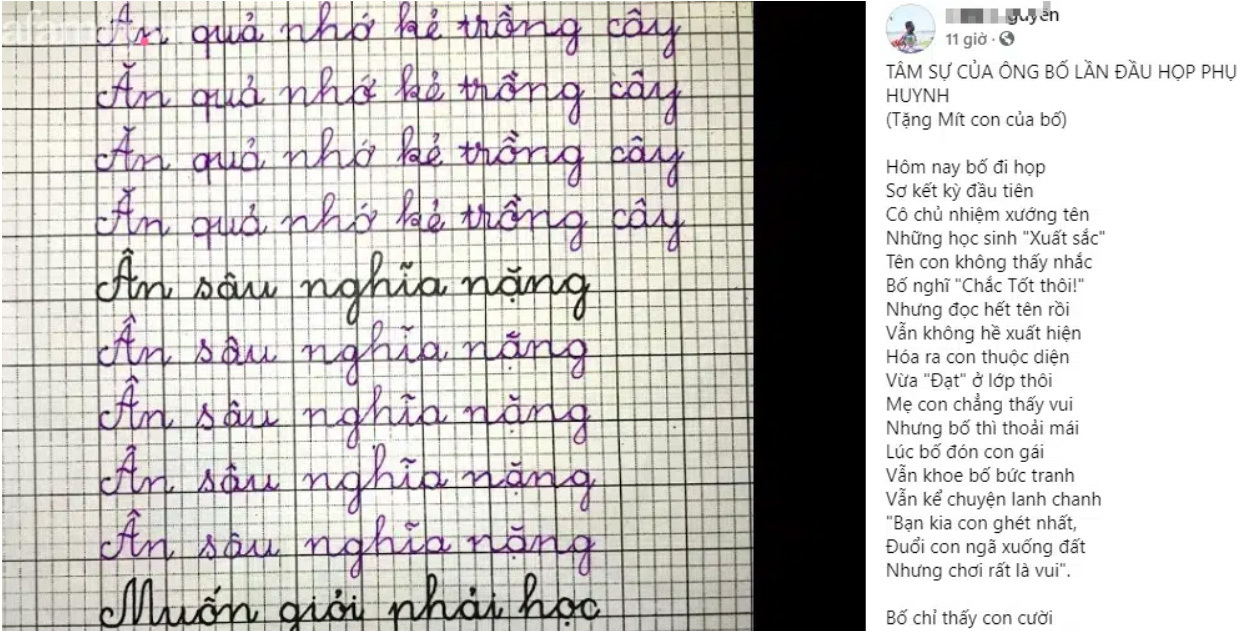 Ăn quả nhớ kẻ trồng cây
Ăn quả nhớ kẻ trồng cây
Ăn quả nhớ kẻ trồng cây
Ăn quả nhớ kẻ trồng cây
Ân sâu nghĩa nặng
Ân sâu nghĩa nặng
Ân sâu nghĩa nặng
Ân sâu nghĩa nặng
Ân sâu nghĩa nặng
Muốn giỏi phải học
guyen
11 giờ ·
TÂM SỰ CỦA ÔNG BỐ LẦN ĐẦU HỌP PHỤ
HUYNH
(Tặng Mít con của bố)
Hôm nay bố đi họp
Sơ kết kỳ đầu tiên
Cô chủ nhiệm xướng tên
Những học sinh "Xuất sắc"
Tên con không thấy nhắc
Bố nghĩ "Chắc Tốt thôi!"
Nhưng đọc hết tên rồi
Vẫn không hề xuất hiện
Hóa ra con thuộc diện
Vừa "Đạt" ở lớp thôi
Mẹ con chẳng thấy vui
Nhưng bố thì thoải mái
Lúc bố đón con gái
Vẫn khoe bố bức tranh
Vẫn kể chuyện lanh chanh
"Bạn kia con ghét nhất,
Đuổi con ngã xuống đất
Nhưng chơi rất là vui".
Bố chỉ thấy con cười